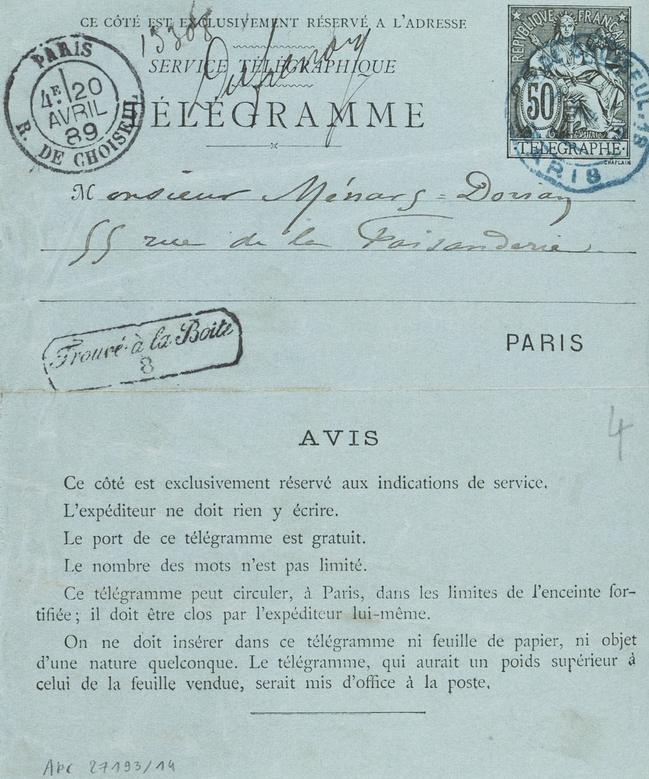 CE CÔTÉ EST EXCLUSIVEMENT RÉSERVÉ A L'ADRESSE
SERVICE TÉLÉGRAPHIQUE
TÉLÉGRAMME
PARIS
4E 20
AVRIL
89
R. DE CHOISEUL
RÉPUBLIQUE FRANÇAISE
50
TÉLÉGRAPHE
CHAPLAIN
PARIS
Monsieur Ménars=Dorian
55 rue de la Faisanderie
PARIS
Trouvé à la Boite
8
AVIS
4
Ce côté est exclusivement réservé aux indications de service.
L'expéditeur ne doit rien y écrire.
Le port de ce télégramme est gratuit.
Le nombre des mots n'est pas limité.
Ce télégramme peut circuler, à Paris, dans les limites de l'enceinte for-
tifiée; il doit être clos par l'expéditeur lui-même.
On ne doit insérer dans ce télégramme ni feuille de papier, ni objet
d'une nature quelconque. Le télégramme, qui aurait un poids supérieur à
celui de la feuille vendue, serait mis d'office à la poste.
27193/14